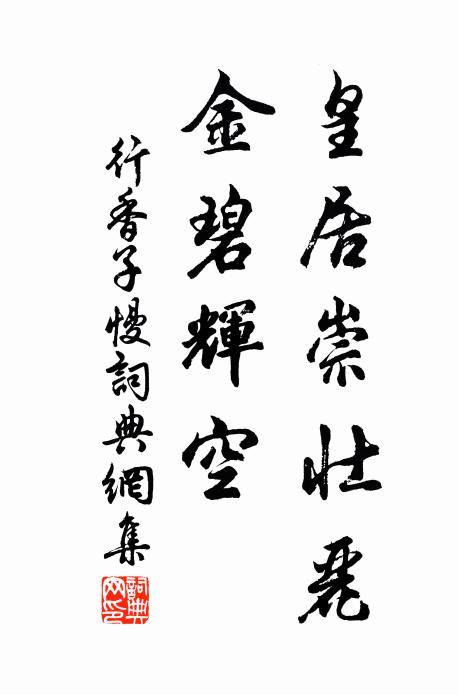 皇居崇壮麗
金碧輝空
行香子慢詞典網集
詞典网印